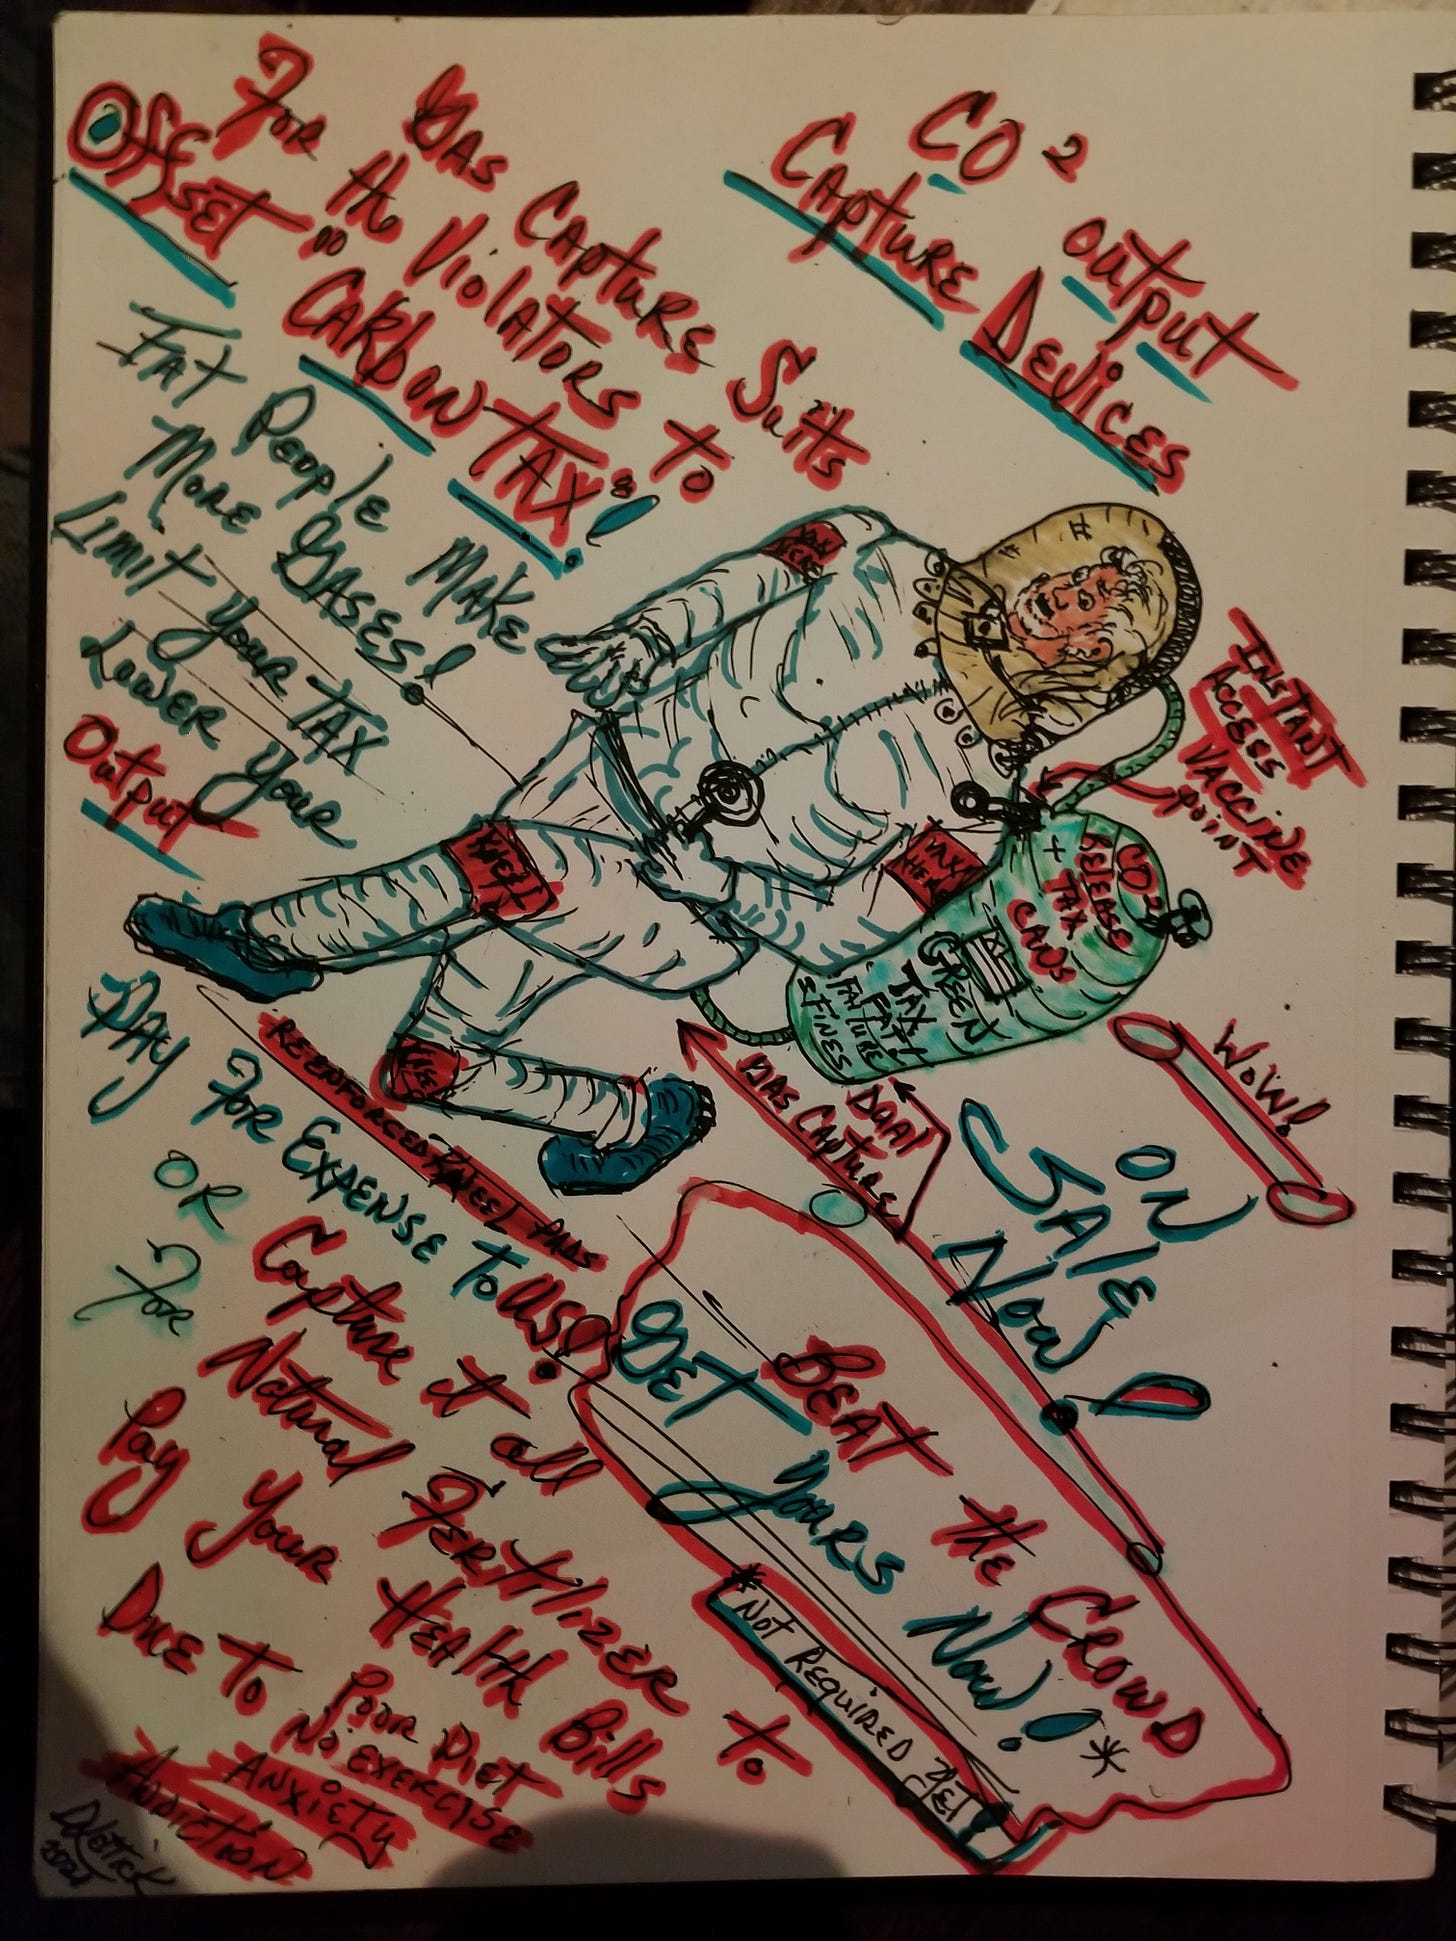 CO2 output
Capture Devices
Gas Capture Suits
For the Violators to
Offset CARbon TAX!
FAT People MAKE
More GASES!
Limit your TAX
Lower your
Output
INSTANT
Access
VACCINE
point
CO2
Release
+ TAX
CANS
GREEN
TAX
FAT!
FATURE
&FINES
KNEEL
Gas CAPTURE
REENFORCED KNEEL PADS
WOW!
ON
SALE
Now!
PAY For EXPENSE to US!
OR Capture it all
For Natural FERTILIZER to
Pay your Health Bills
Due to Poor Diet
No EXERCISE
ANXIETY
ADDICTION
BEAT the CROWD
GET yours Now! *
*Not Required YET!
DKetrick